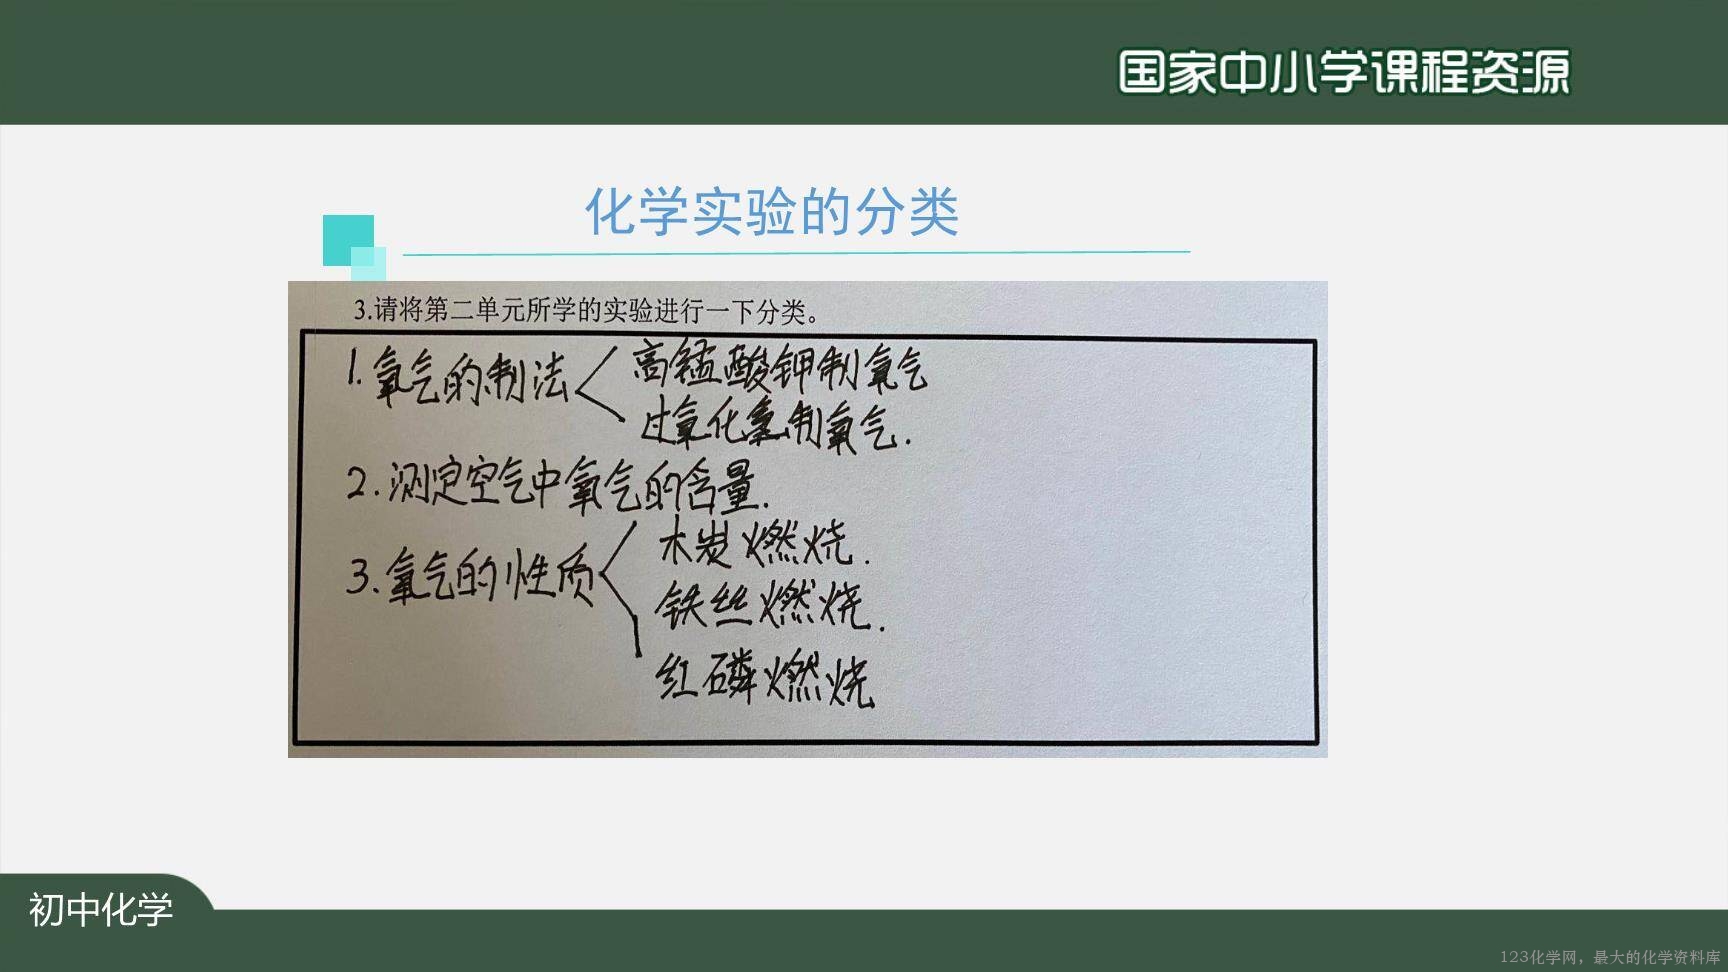 国家中小学课程资源
化学实验的分类
3.请将第二单元所学的实验进行一下分类。
1.氧气的制法
高锰酸钾制氧气
过氧化氢制氧气.
2.测定空气中氧气的含量.
3.氧气的性质
木炭燃烧.
铁丝燃烧.
红磷燃烧
初中化学
123化学网，最大的化学资料库